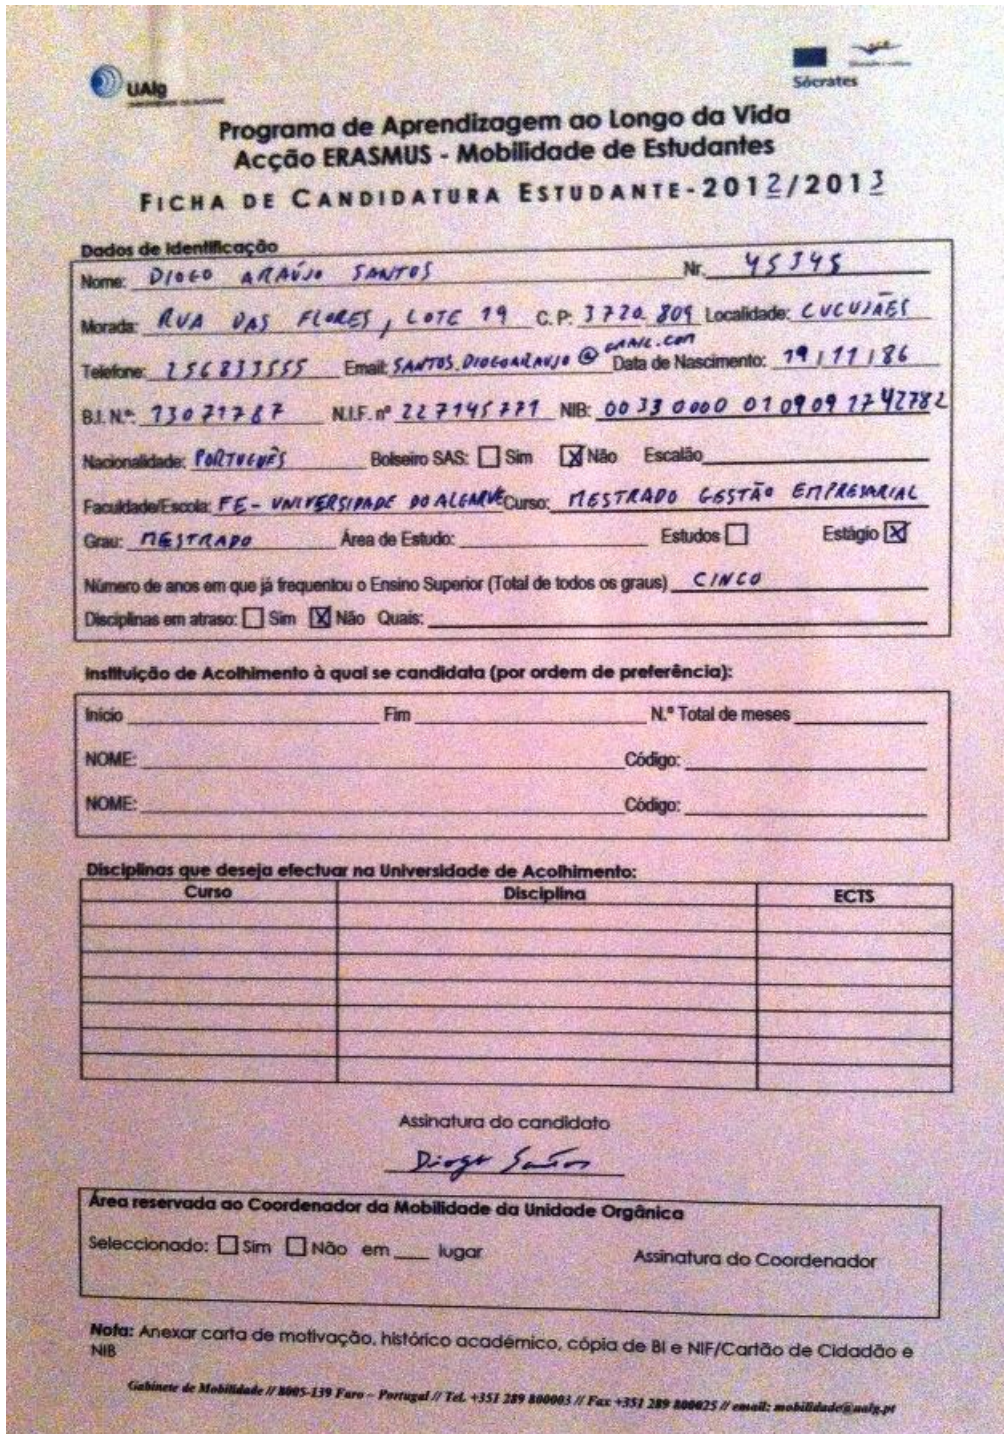 UAlg
Sócrates
Programa de Aprendizagem ao Longo da Vida
Acção ERASMUS - Mobilidade de Estudantes
FICHA DE CANDIDATURA ESTUDANTE-2012/2013
Dados de Identificação
Nome: DIOGO ARAÚJO SANTOS Nr. 45345
Morada: RUA DAS FLORES, LOTE 19 C.P: 3720 809 Localidade: CUCUJÃES
Telefone: 256833555 Email: SANTOS.DIOGOARAUJO@GMAIL.COM Data de Nascimento: 19/11/86
B.I. N.º: 13071787 N.I.F. nº 227145771 NIB: 0033 0000 0109 09 1742782
Nacionalidade: PORTUGUÊS Bolseiro SAS: Sim X Não Escalão
Faculdade/Escola: FE - UNIVERSIDADE DO ALGARVE Curso: MESTRADO GESTÃO EMPRESARIAL
Grau: MESTRADO Área de Estudo: Estudos Estágio X
Número de anos em que já frequentou o Ensino Superior (Total de todos os graus) CINCO
Disciplinas em atraso: Sim X Não Quais:
Instituição de Acolhimento à qual se candidata (por ordem de preferência):
Início Fim N.º Total de meses
NOME: Código:
NOME: Código:
Disciplinas que deseja efectuar na Universidade de Acolhimento:
Curso Disciplina ECTS
Assinatura do candidato
Diogo Santos
Área reservada ao Coordenador da Mobilidade da Unidade Orgânica
Seleccionado: Sim Não em ___ lugar Assinatura do Coordenador
Nota: Anexar carta de motivação, histórico académico, cópia de BI e NIF/Cartão de Cidadão e
NIB
Gabinete de Mobilidade // 8005-139 Faro – Portugal // Tel. +351 289 800003 // Fax +351 289 800025 // email: mobilidade@ualg.pt